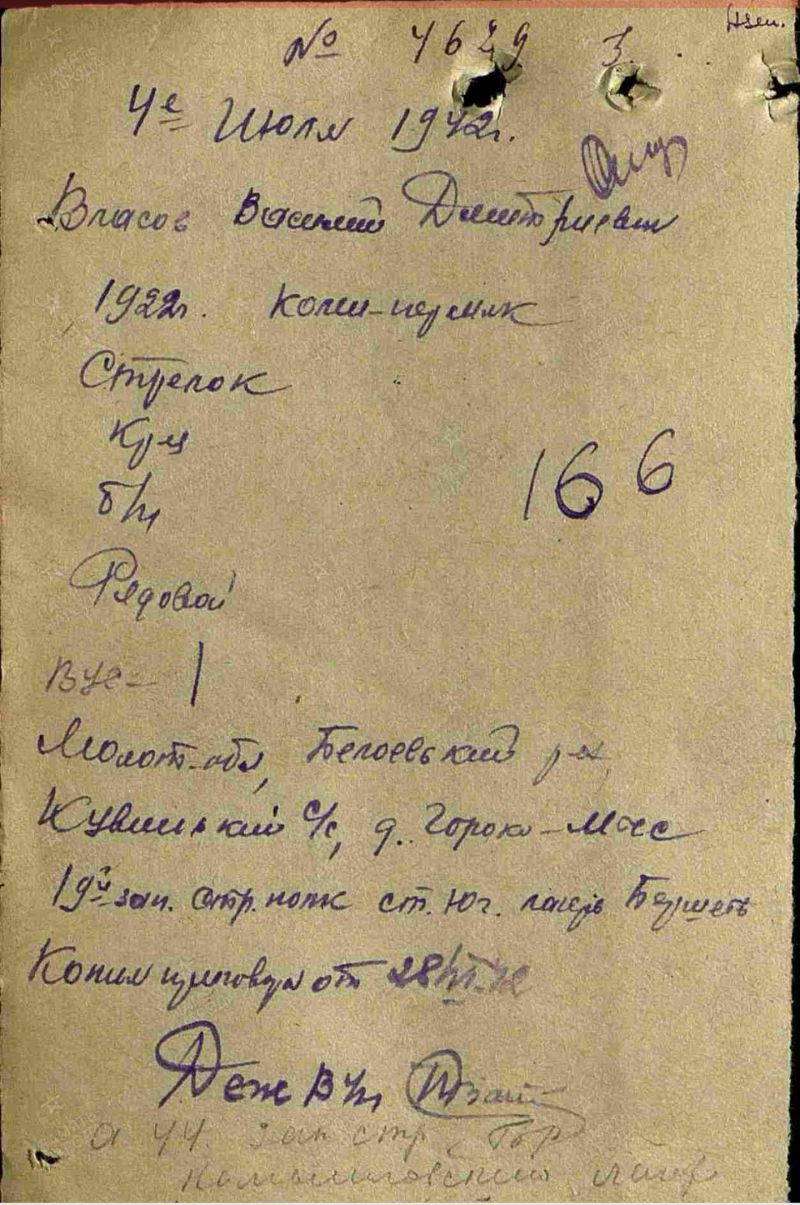 № 4629 3.
4е Июля 1942г.
Власов Василий Дмитриевич
1922г. Коми-пермяк
Стрелок
Кр-ц
166
б/п
Рядовой
ВУС- 1
Молот. обл, Белоевький р-н,
Кувинький с/с, д.
19й зап. стр. полк ст. Юг. лагерь Бершеть
Копия приговора от 28/VI-42
Деж ВУ
а 44 зап стр
Камышловский лагерь